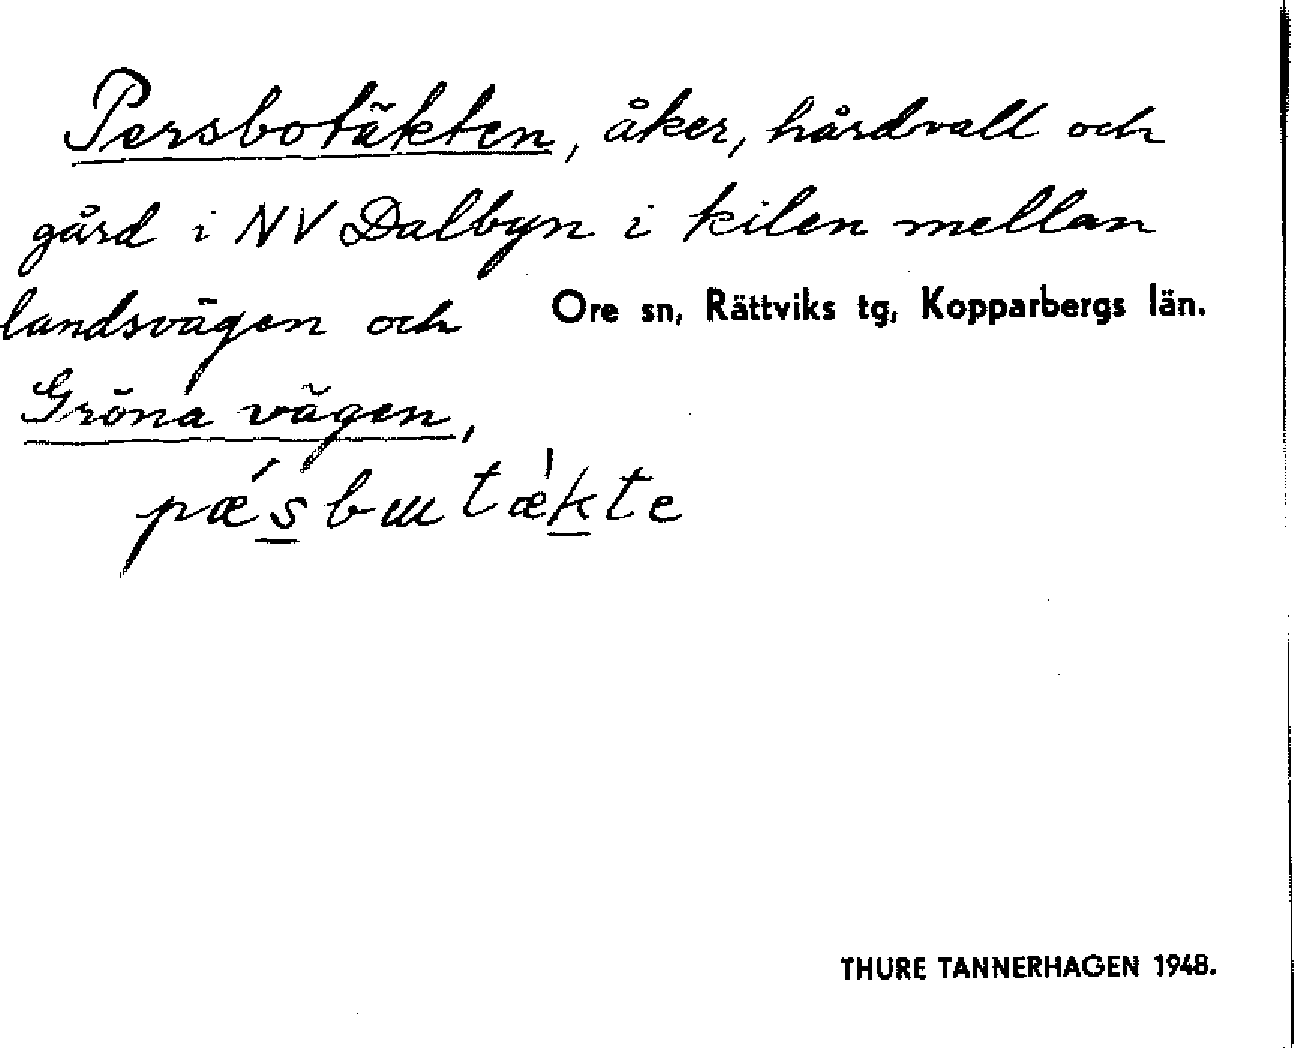 Persbotäkten, åker, hårdvall och
gård i NV Dalbyn i kilen mellan
landsvägen och
Ore sn, Rättviks tg, Kopparbergs län.
Gröna vägen,
pæ´sbɯtæ`kte
THURE TANNERHAGEN 1948.